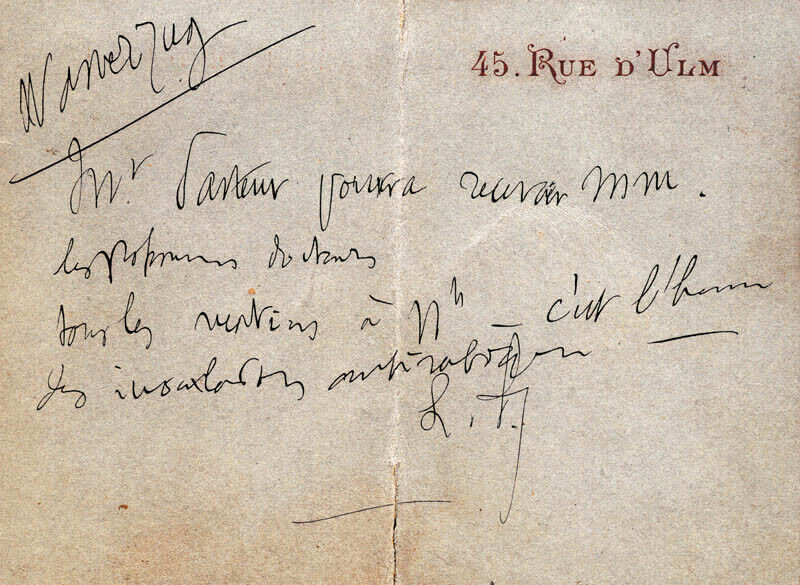 45. RUE D'ULM
Mr. Pasteur pourra recevoir MM.
les professeurs docteurs
tous les matins à 11h _ c'est l'heure
des inoculations antirabiques
L. P.